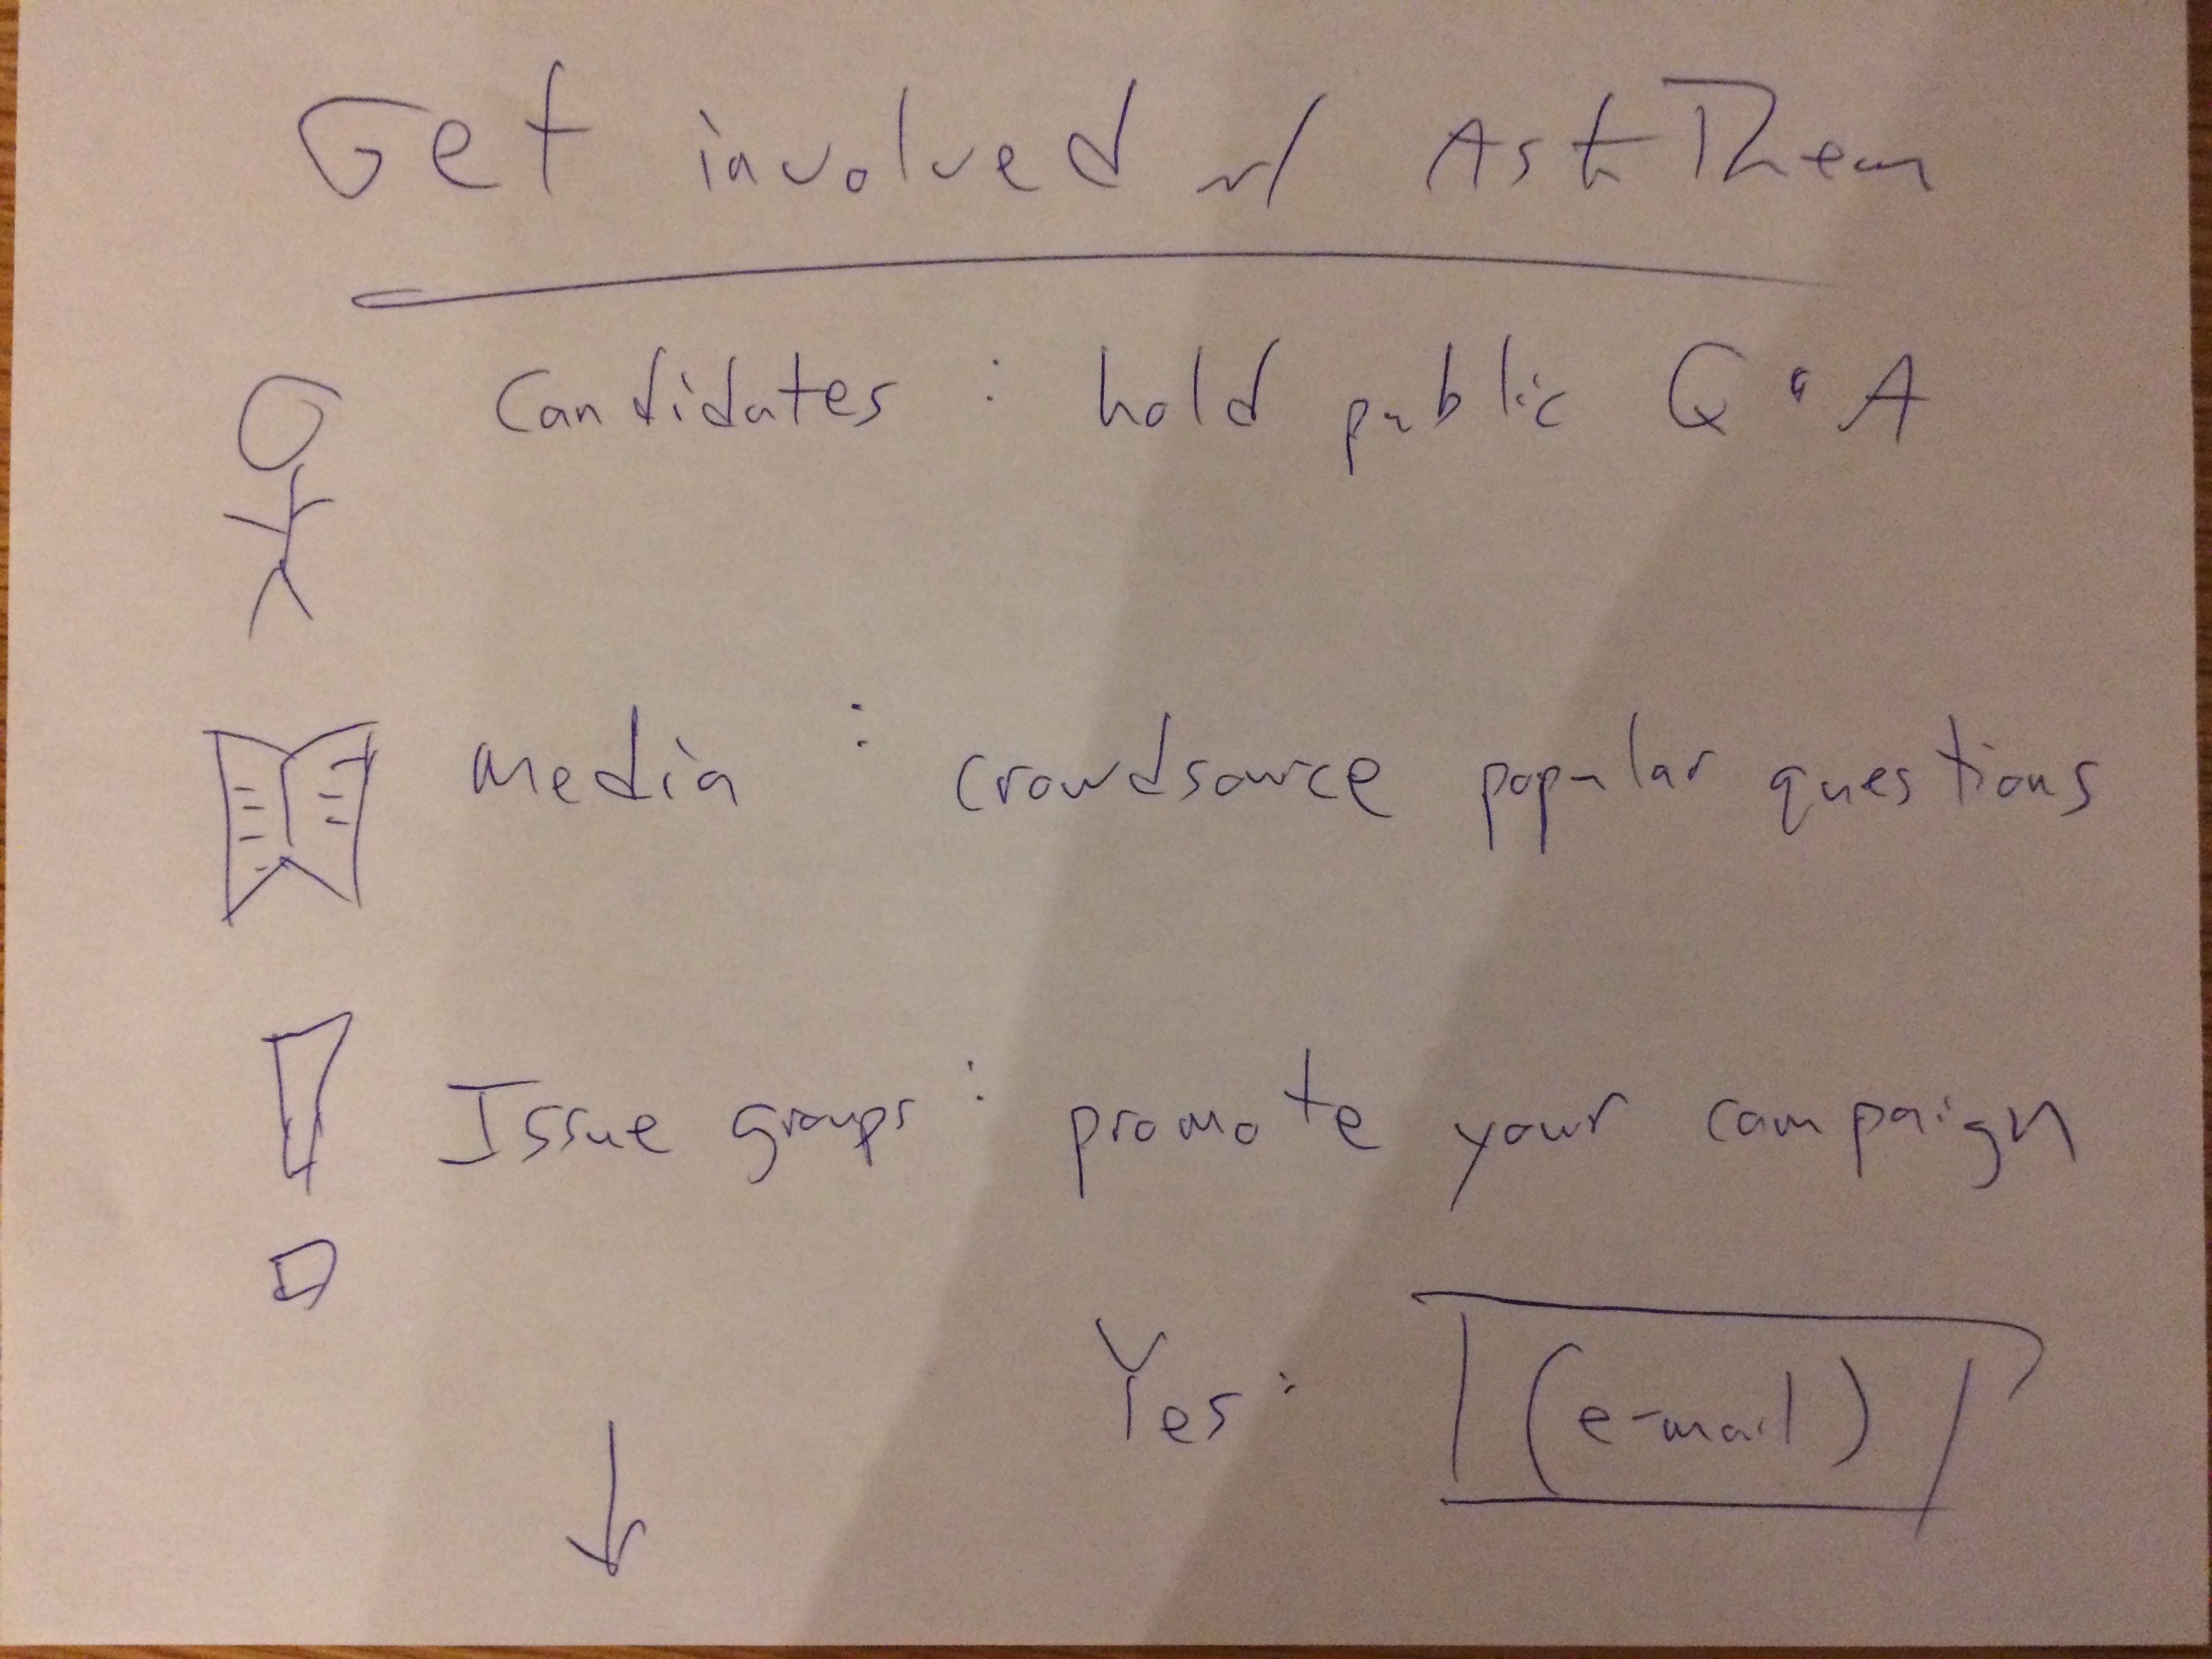 Get involved w/ AskThem
Candidates : hold public Q & A
Media : crowdsource popular questions
Issue groups : promote your campaign
Yes: (e-mail)